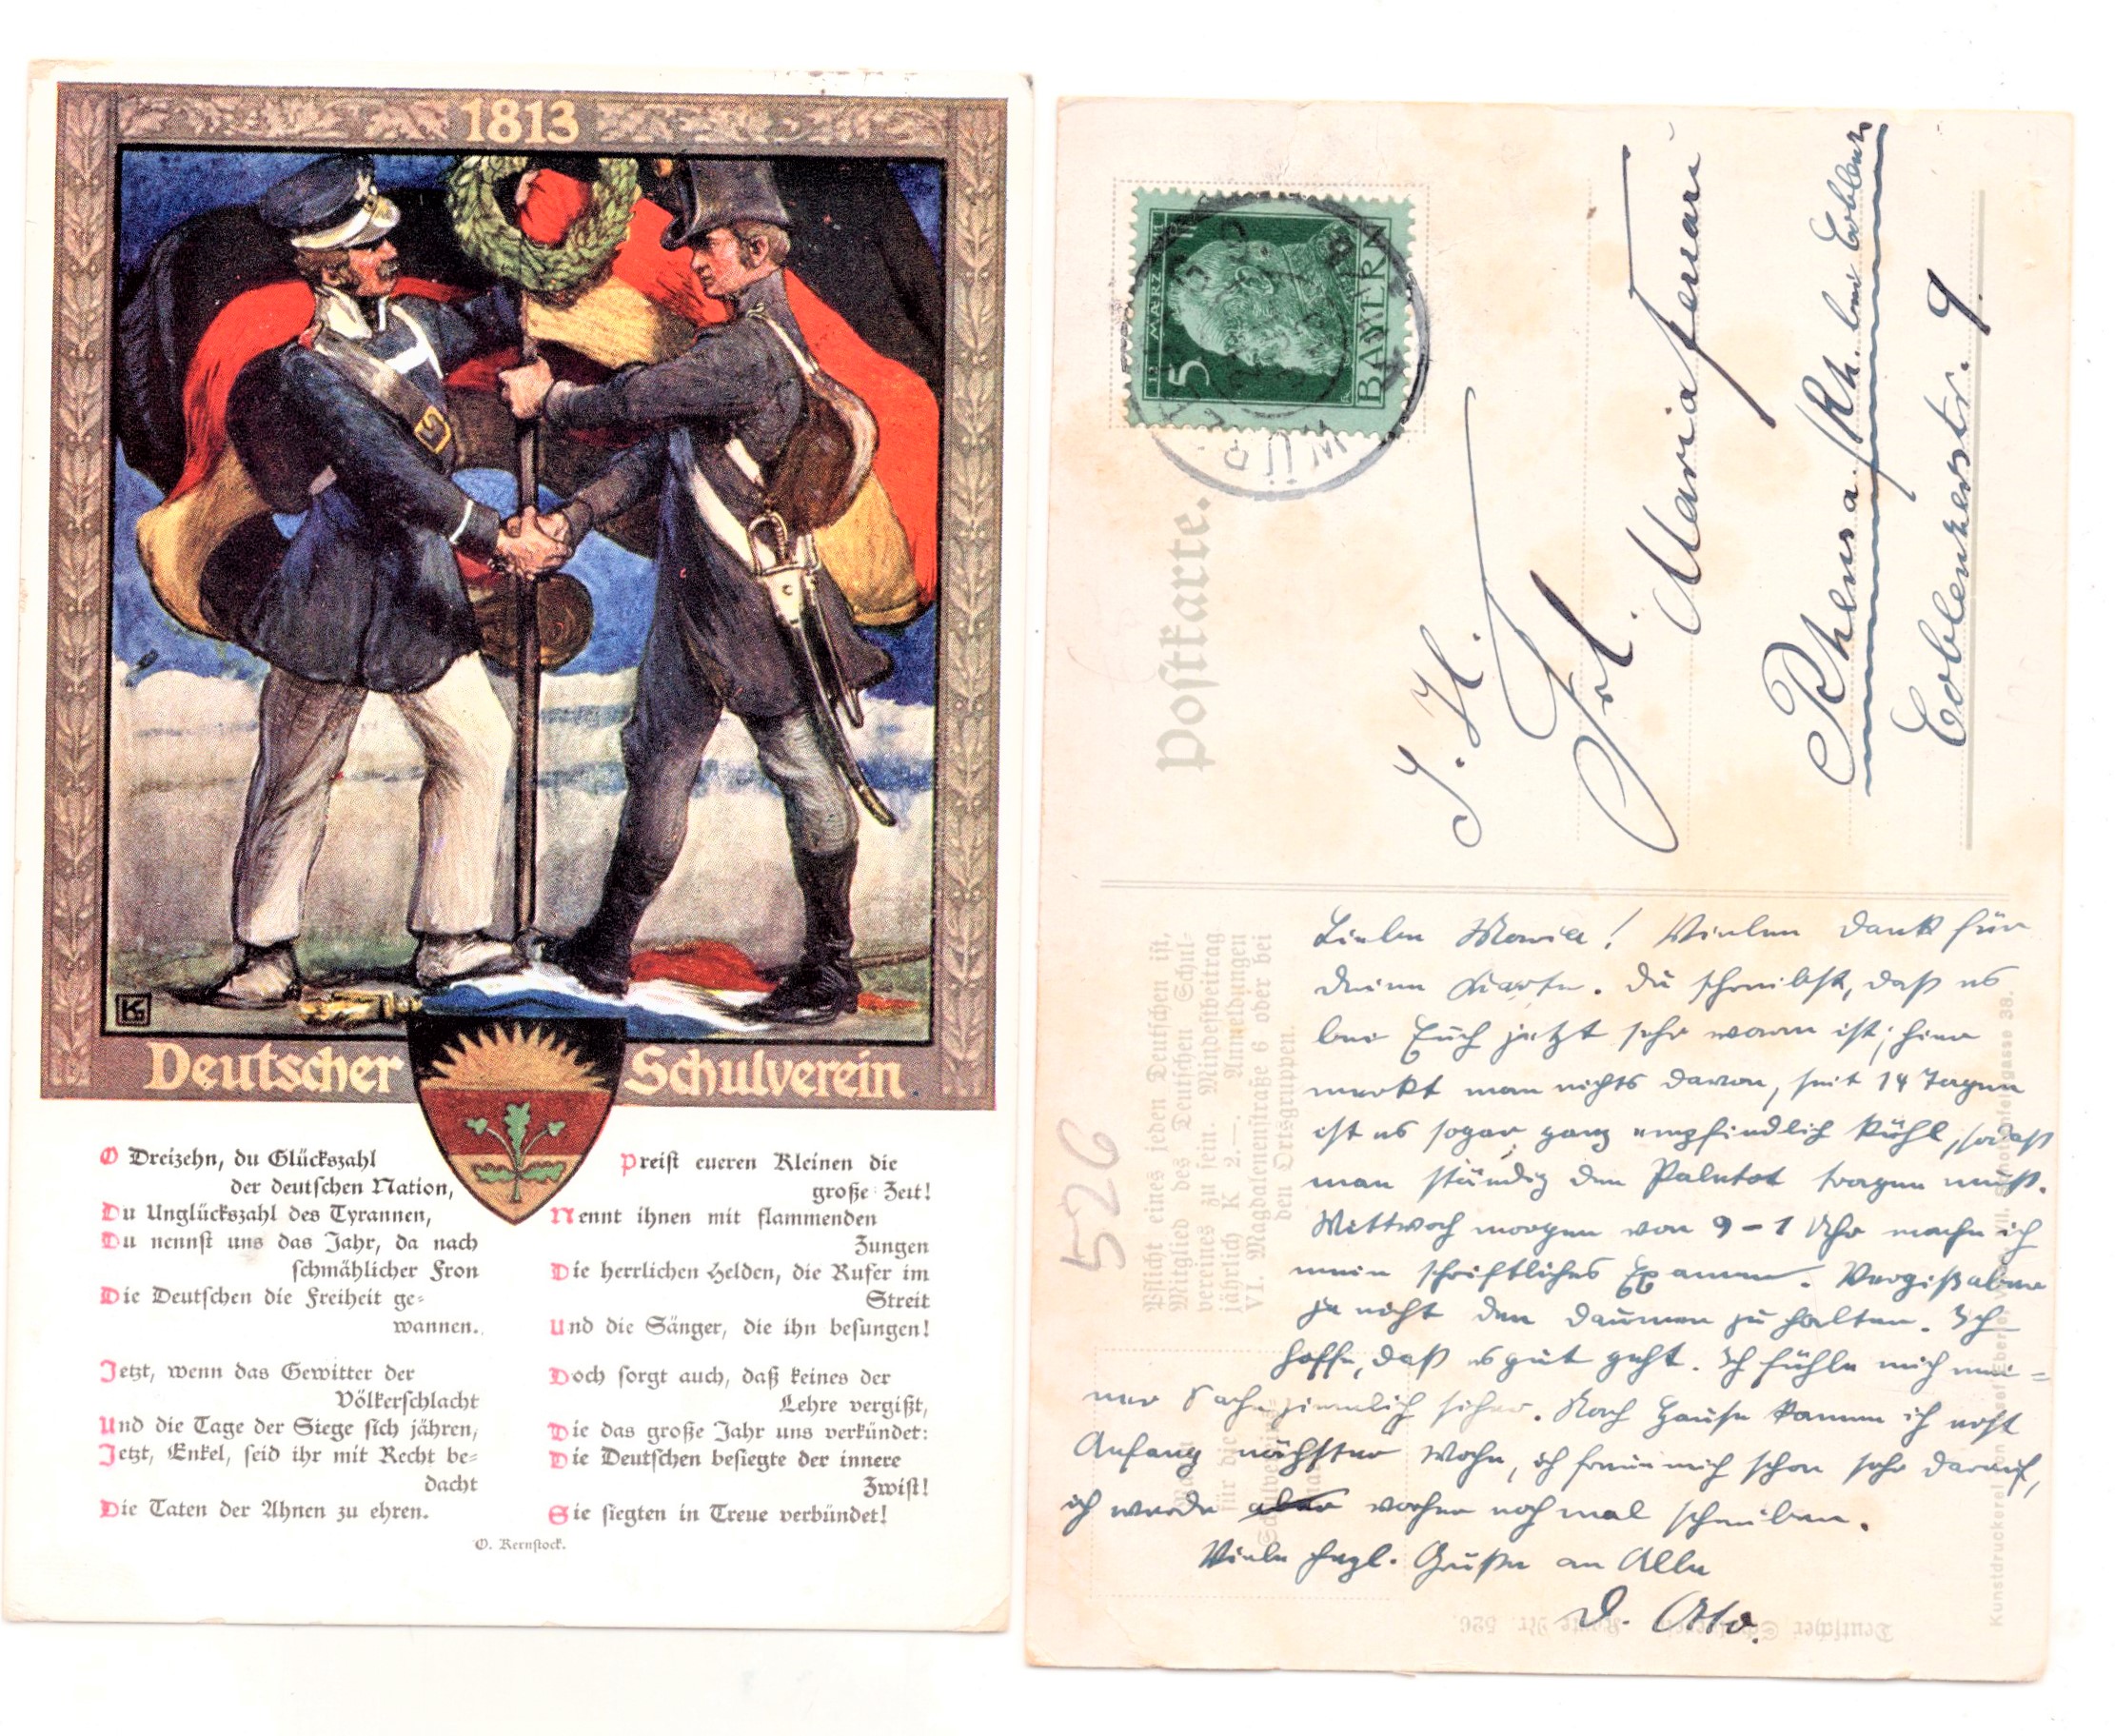 1813
KG
Deutscher Schulverein
O Dreizehn, du Glückszahl
der deutschen Nation,
Du Unglückszahl des Tyrannen,
Du nennst uns das Jahr, da nach
schmählicher Fron
Die Deutschen die Freiheit ge-
wannen.
Jetzt, wenn das Gewitter der
Völkerschlacht
Und die Tage der Siege sich jähren,
Jetzt, Enkel, seid ihr mit Recht be-
dacht
Die Taten der Ahnen zu ehren.
Preist eueren Kleinen die
große Zeit!
Nennt ihnen mit flammenden
Zungen
Die herrlichen Helden, die Rufer im
Streit
Und die Sänger, die ihn besungen!
Doch sorgt auch, daß keines der
Lehre vergißt,
Die das große Jahr uns verkündet:
Die Deutschen besiegte der innere
Zwist!
Sie siegten in Treue verbündet!
O. Kernstock.
5
BAYERN
Postkarte.
J. H.
Frl. Maria
Rhens a/Rh. bei Coblenz
Coblenzerstr. 9
Pflicht eines jeden Deutschen ist,
Mitglied des Deutschen Schul-
vereines zu sein. Mindestbeitrag
jährlich K 2.—. Anmeldungen
VI. Magdalenenstraße 6 oder bei
den Ortsgruppen.
526
Liebe Maria! Vielen Dank für
deine Karte. Du schreibst, daß es
bei Euch jetzt sehr warm ist; hier
merkt man nichts davon, seit 14 Tagen
ist es sogar ganz empfindlich kühl, sodaß
man ständig den Paletot tragen muß.
Mittwoch morgen von 9–1 Uhr mache ich
mein schriftliches Examen. Vergiß aber
ja nicht den Daumen zu halten. Ich
hoffe, daß es gut geht. Ich fühle mich mei-
ner Sache ziemlich sicher. Nach Hause komme ich erst
Anfang nächster Woche, ich freue mich schon sehr darauf,
ich werde aber vorher noch mal schreiben.
Viele hrzl. Grüße an Alle
D. Otto.
Deutscher Schulverein Karte Nr. 526.